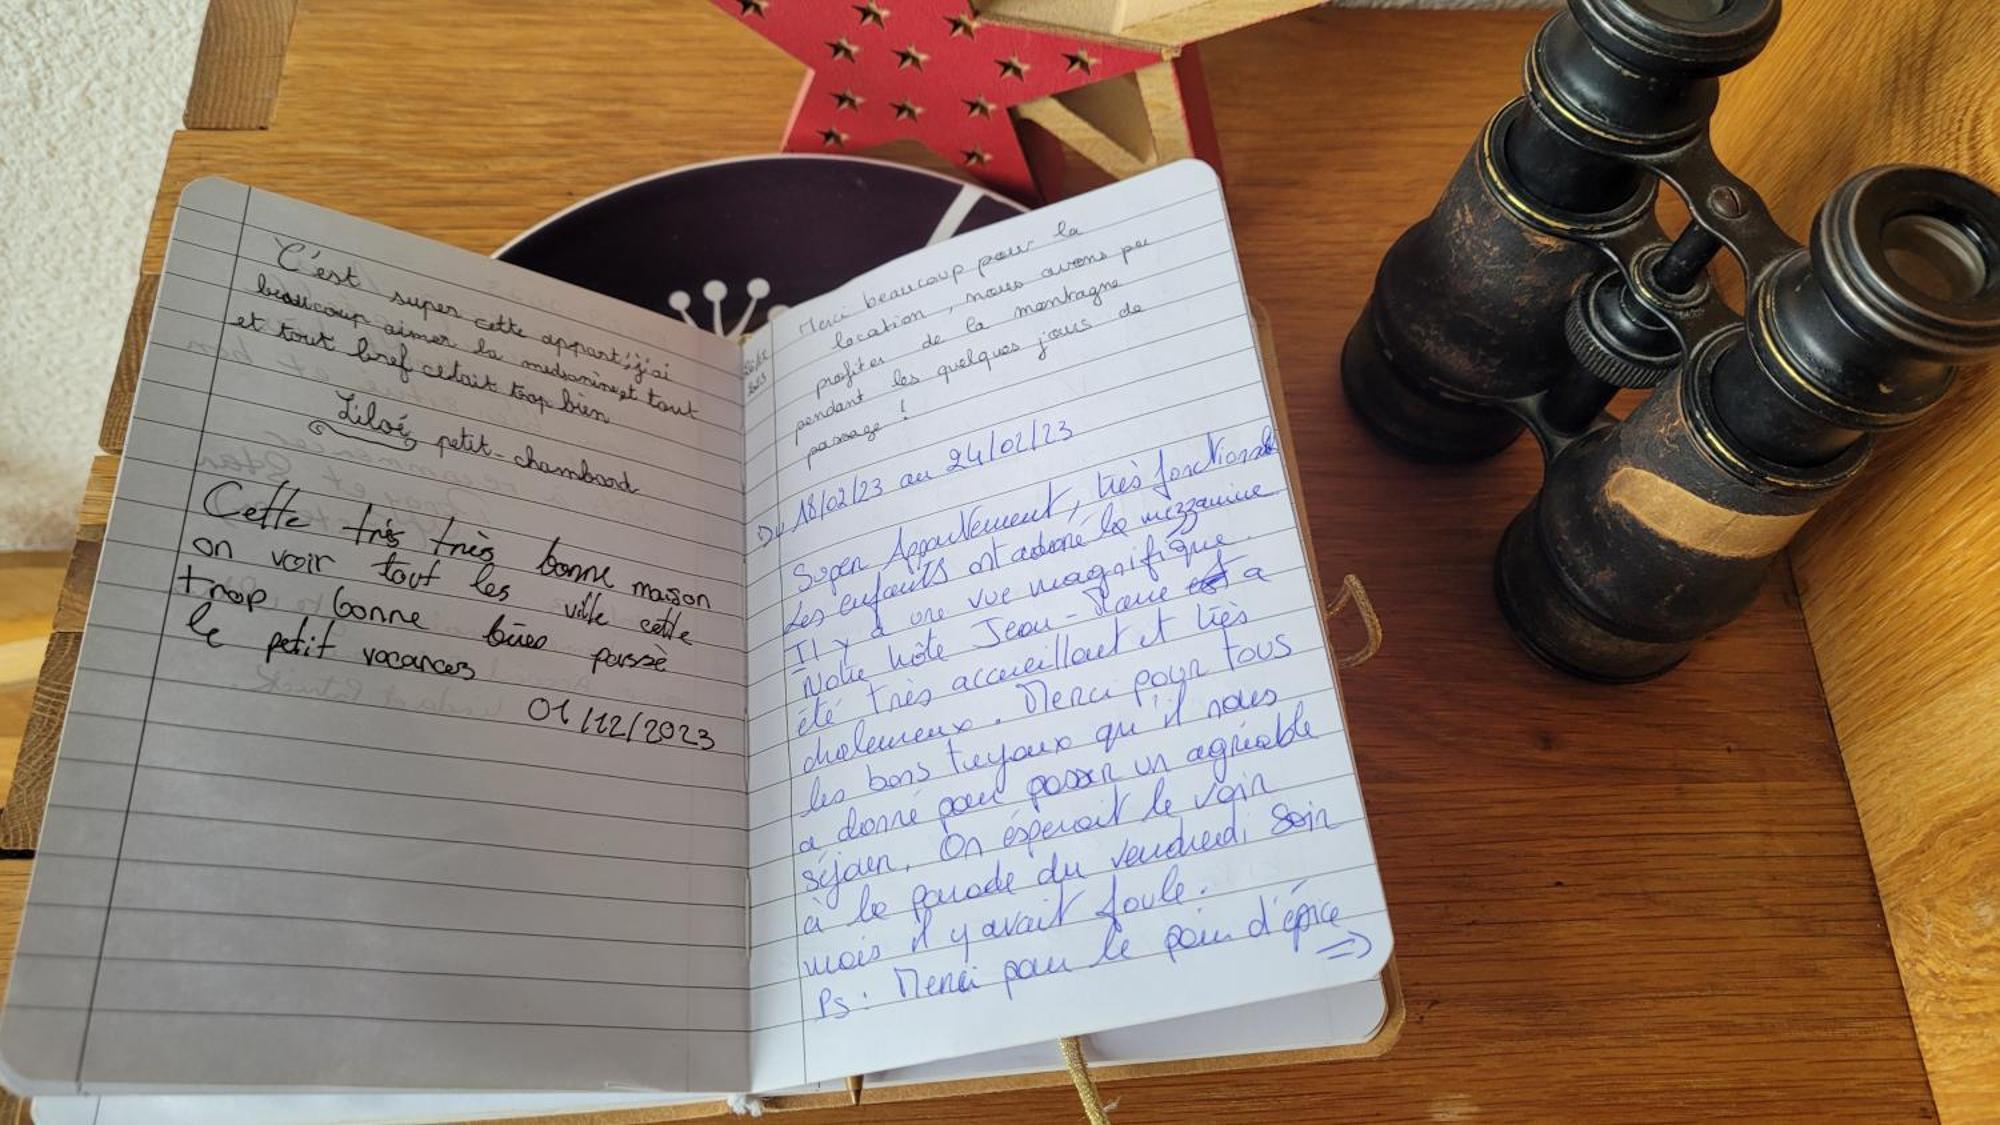 C'est super cette appart, j'ai
beaucoup aimer la medsanine et tout
et tout bref cétait trop bien
Liloé petit-chambard
Cette très très bonne maison
on voir tout les ville cette
trop bonne passè
le petit vacances
01/12/2023
Merci beaucoup pour la
location, nous avons pu
profiter de la montagne
pendant les quelques jours de
passage !
Du 18/02/23 au 24/02/23
Super Appartement, très fonctionnel
Les enfants ont adoré la mezzanine
Il y a une vue magnifique.
Notre hôte Jean-Marie a
été très accueillant et très
chaleureux. Merci pour tous
les bons tuyaux qu'il nous
a donné pour passer un agréable
séjour. On espérait le voir
à la parade du vendredi soir
mais il y avait foule.
Ps : Merci pour le pain d'épice
=>